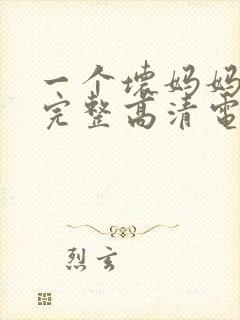 一个坏妈妈
完整高清电
烈玄